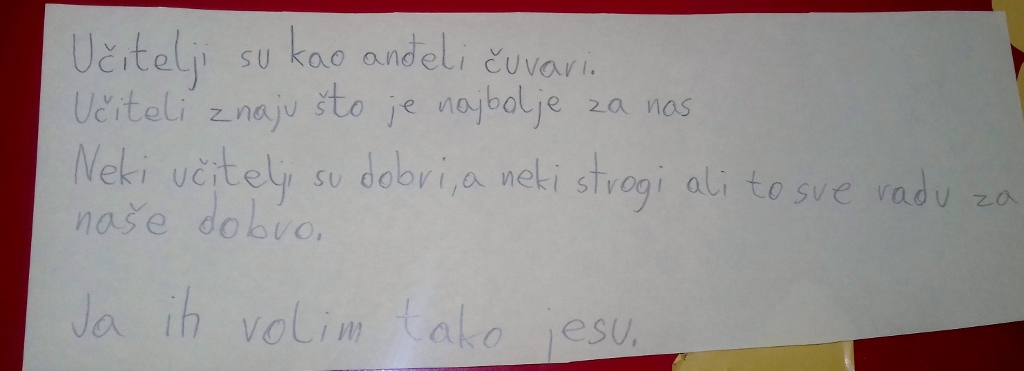 Učitelji su kao anđeli čuvari.
Učiteli znaju što je najbolje za nas
Neki učitelji su dobri, a neki strogi ali to sve radu za
naše dobro.
Ja ih volim tako jesu.